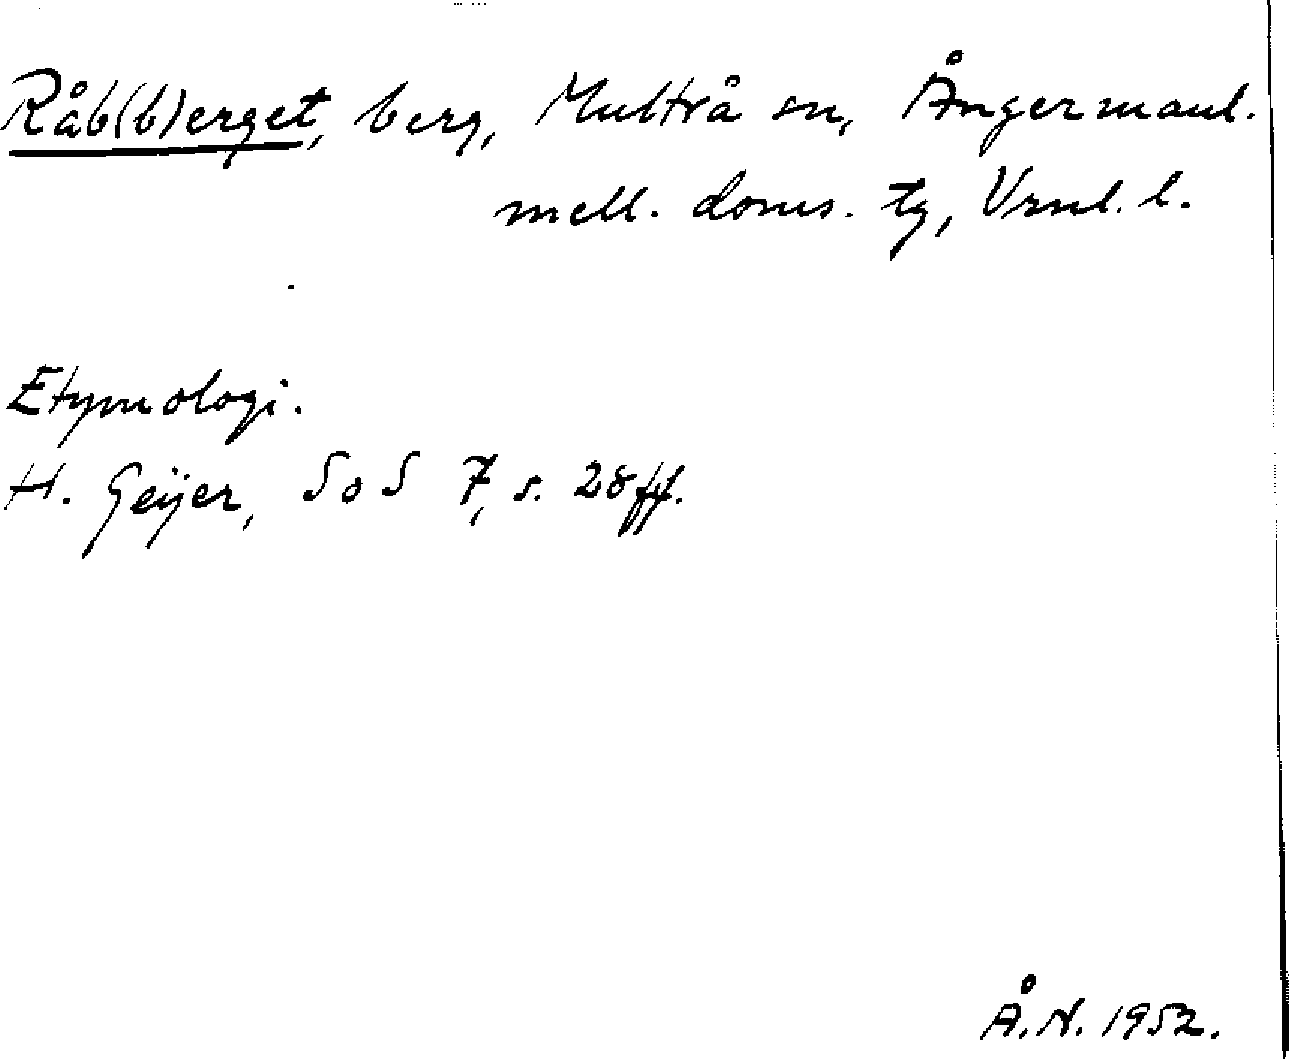 Råb(b)erget, berg, Multrå sn, Ångermanl.
mell. doms. tg, Vrnl. l.
Etymologi.
H. Geijer, SoS 7, s. 28 ff.
Å.N. 1952.